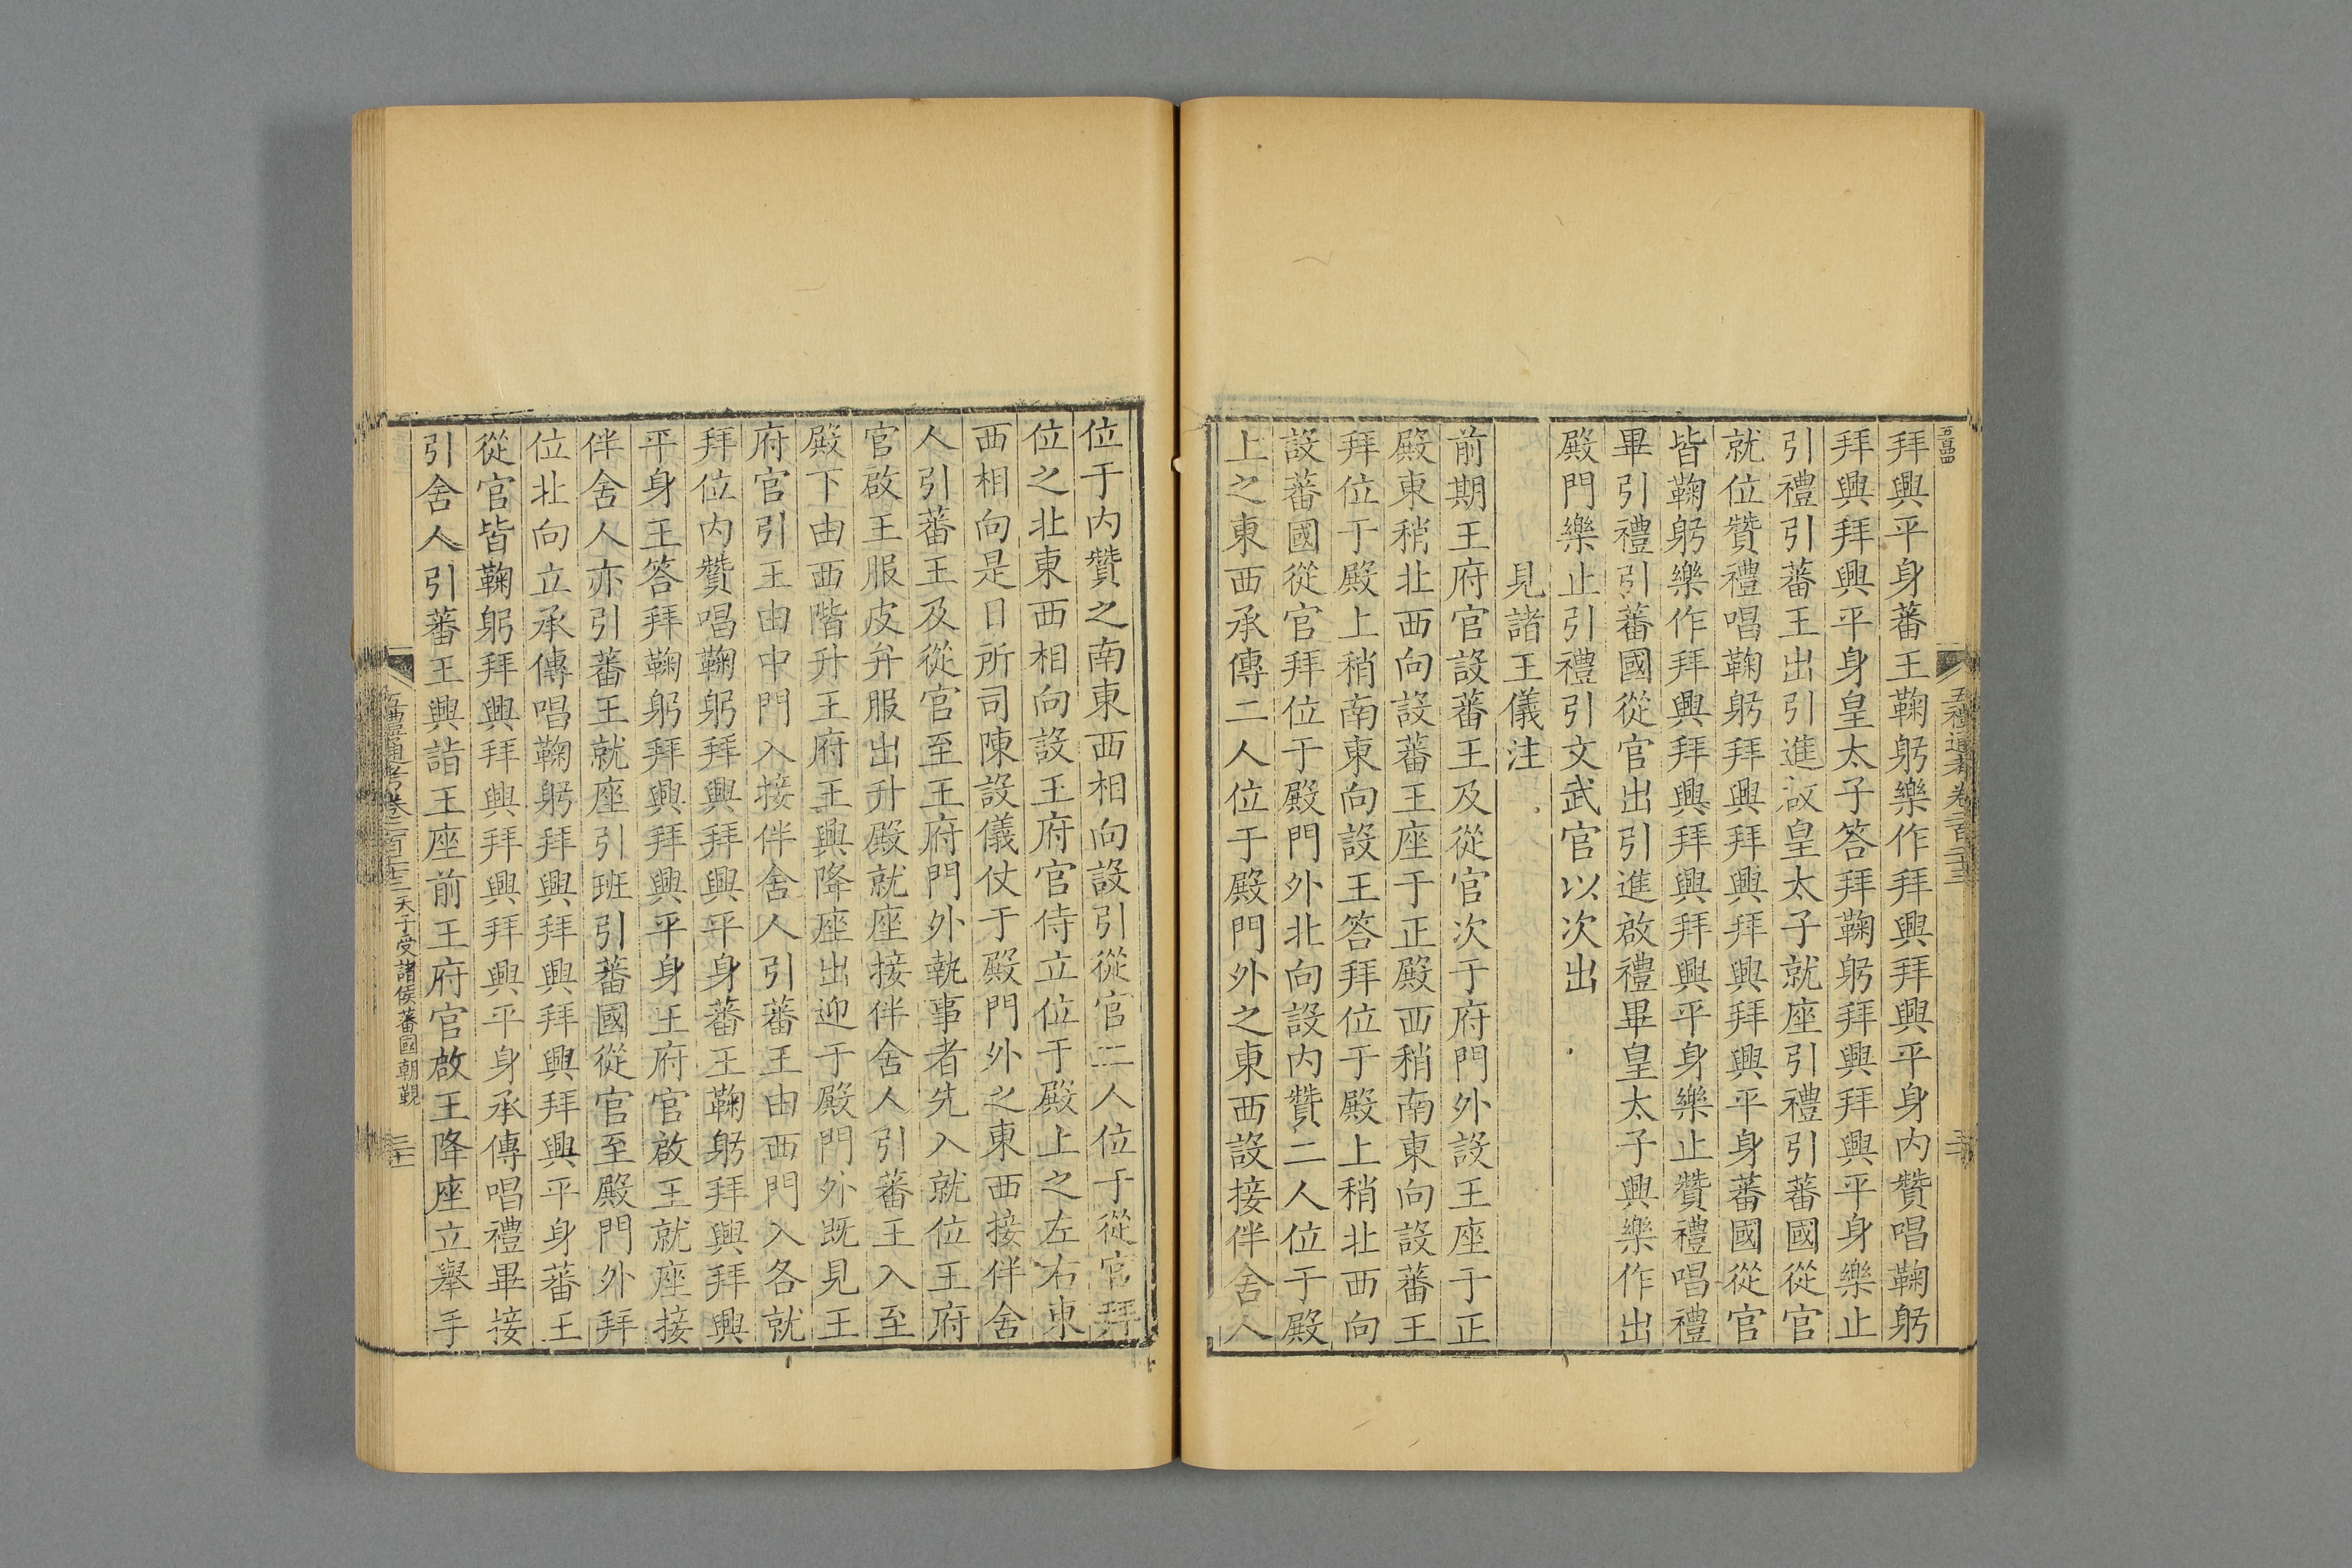 拜興平身蕃王鞠躬樂作拜興拜興平身内贊唱鞠躬
拜興拜興平身皇太子答拜鞠躬拜興拜興平身樂止
引禮引蕃王出引進啟皇太子就座引禮引蕃國從官
就位贊禮唱鞠躬拜興拜興拜興拜興平身蕃國從官
皆鞠躬樂作拜興拜興拜興拜興平身樂止贊禮唱禮
畢引禮引蕃國從官出引進啟禮畢皇太子興樂作出
殿門樂止引禮引文武官以次出
見諸王儀注
前期王府官設蕃王及從官次于府門外設王座于正
殿東稍北西向設蕃王座于正殿西稍南東向設蕃王
拜位于殿上稍南東向設王答拜位于殿上稍北西向
設蕃國從官拜位于殿門外北向設内贊二人位于殿
上之東西承傳二人位于殿門外之東西設接伴舍人
位于内贊之南東西相向設引從官二人位于從官拜
位之北東西相向設王府官侍立位于殿上之左右東
西相向是日所司陳設儀仗于殿門外之東西接伴舍
人引蕃王及從官至王府門外執事者先入就位王府
官啟王服皮弁服出升殿就座接伴舍人引蕃王入至
殿下由西階升王府王興降座出迎于殿門外既見王
府官引王由中門入接伴舍人引蕃王由西門入各就
拜位内贊唱鞠躬拜興拜興平身蕃王鞠躬拜興拜興
平身王答拜鞠躬拜興拜興平身王府官啟王就座接
伴舍人亦引蕃王就座引班引蕃國從官至殿門外拜
位北向立承傳唱鞠躬拜興拜興拜興拜興平身蕃王
從官皆鞠躬拜興拜興拜興拜興平身承傳唱禮畢接
引舍人引蕃王興詣王座前王府官啟王降座立舉手
天子受諸侯蕃國朝覲